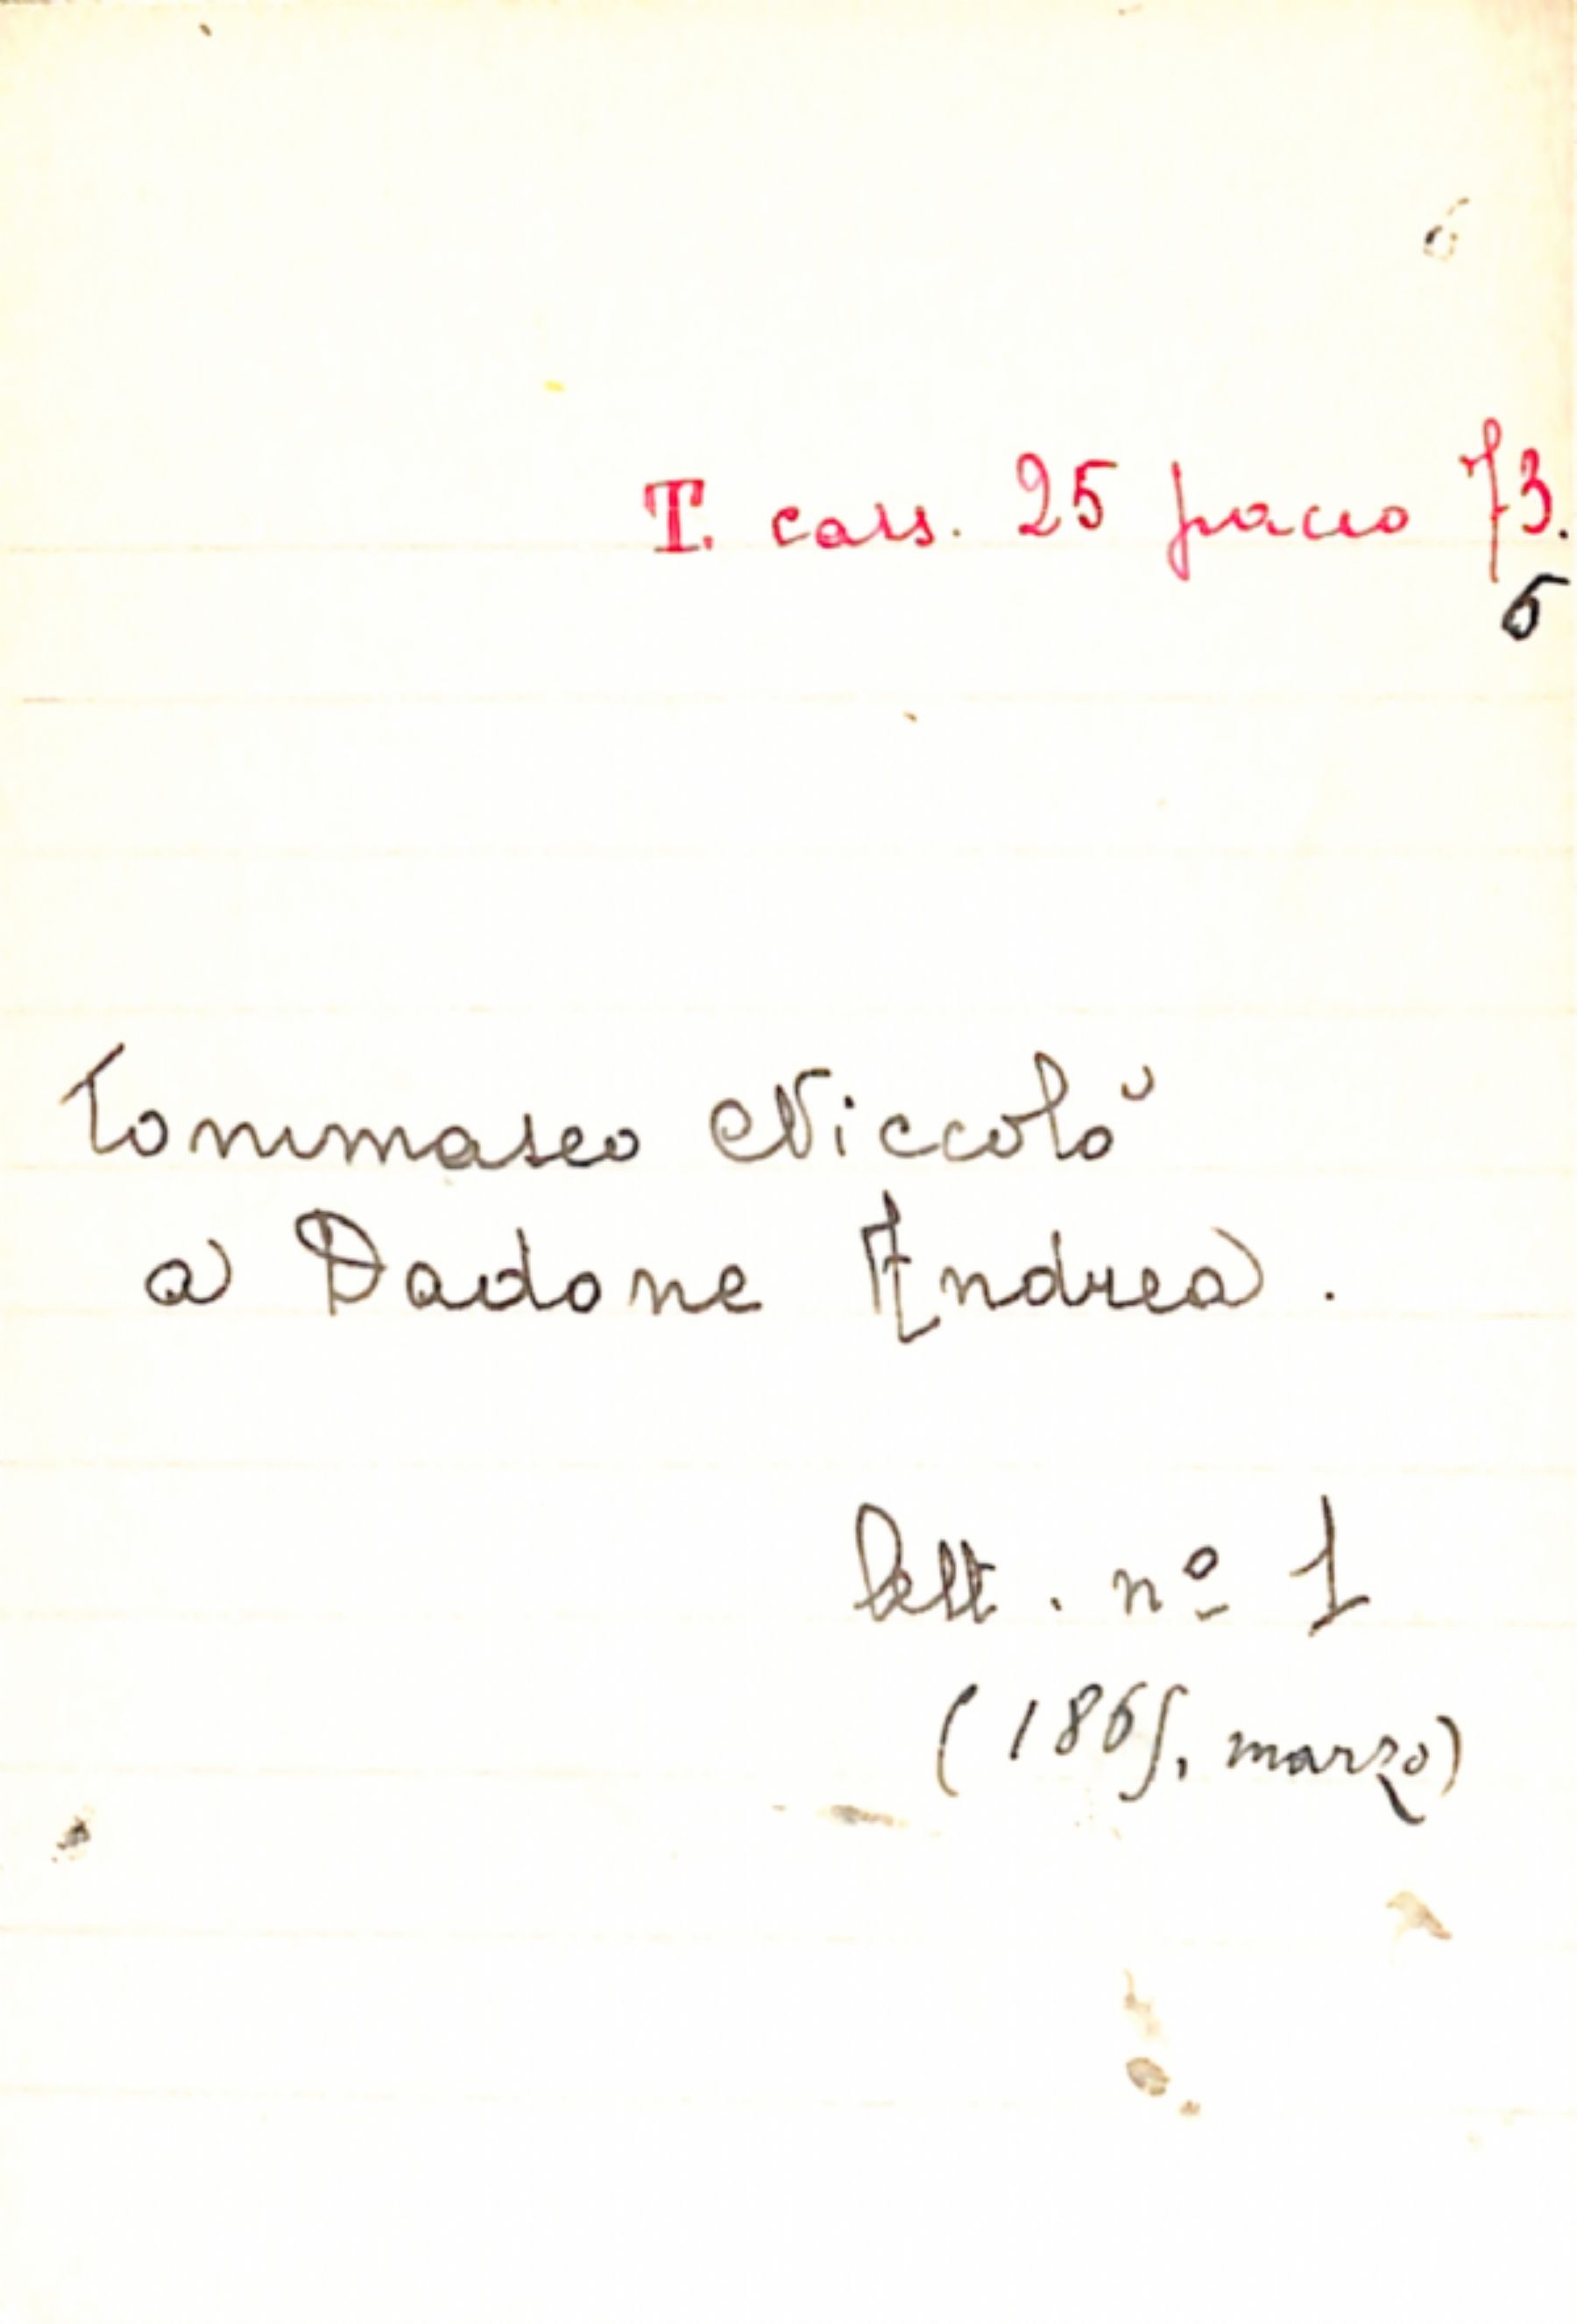 T. cass. 25 pacco 73.
5
Tommaseo Niccolò
a Dadone Andrea.
Lett. nº 1
(1865, marzo)